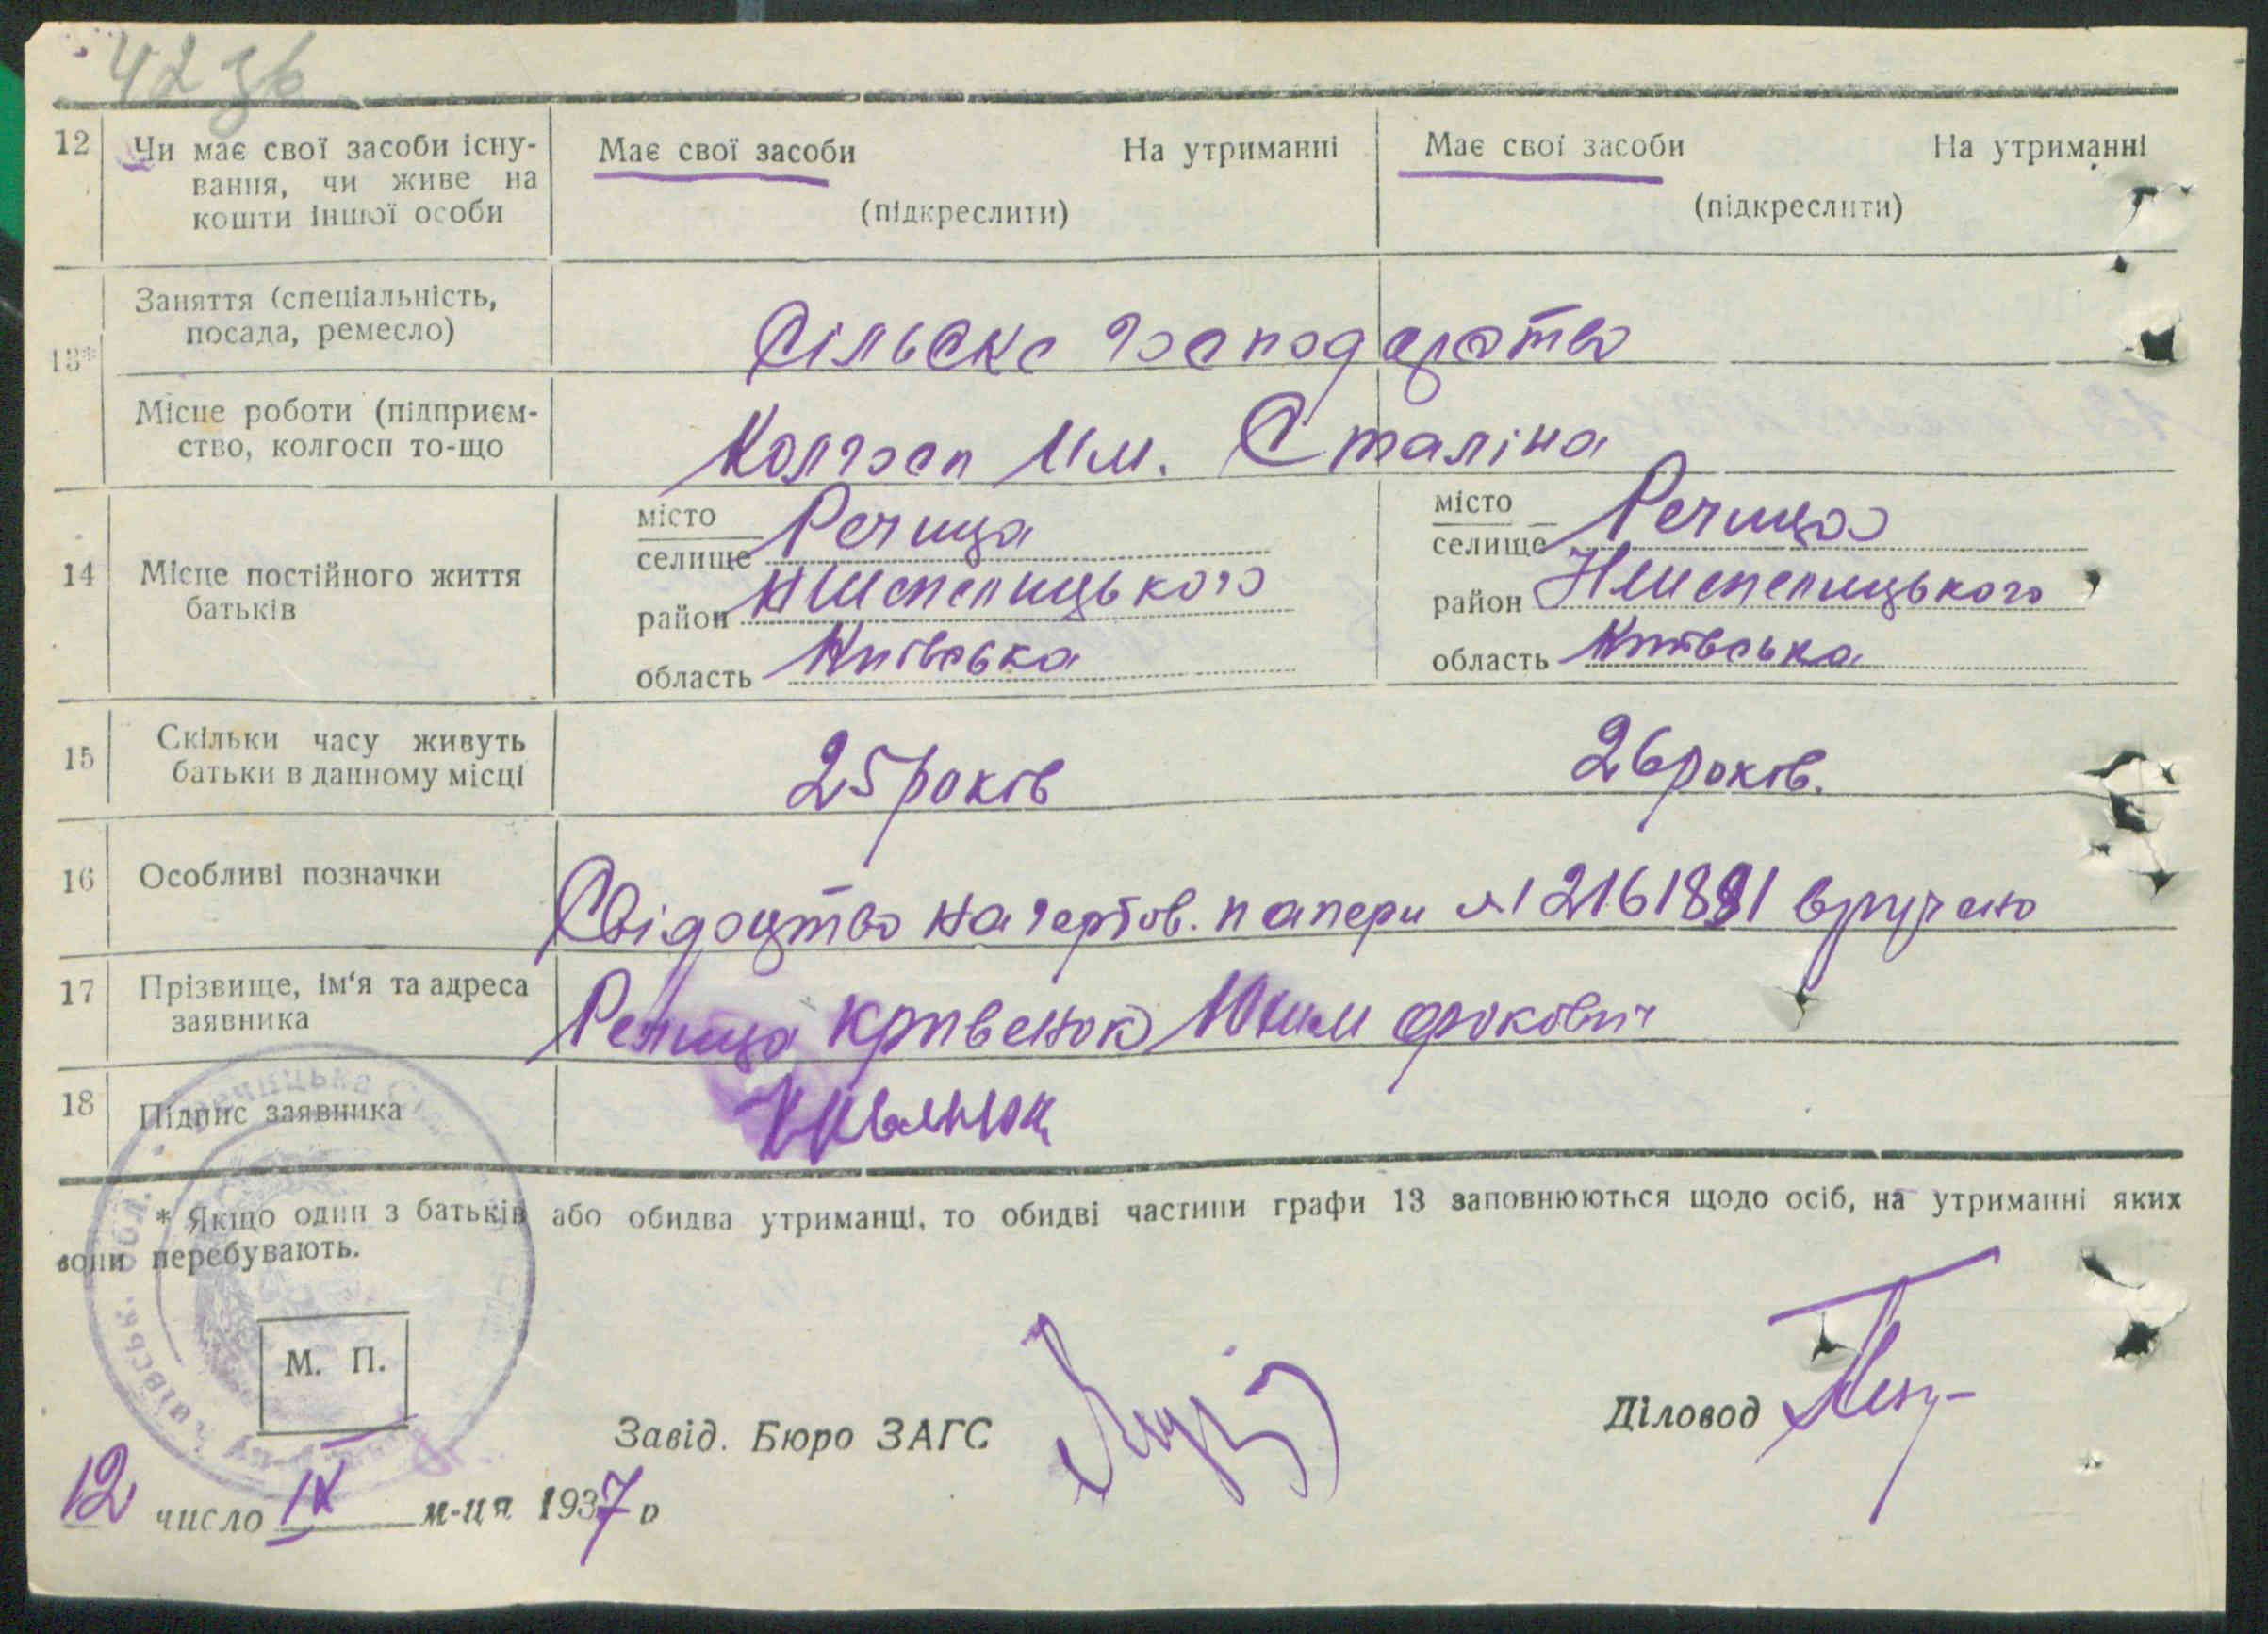 42 зв
12 Чи має свої засоби існу- Має свої засоби На утриманні Має свої засоби На утриманні
вання, чи живе на
кошти іншої особи (підкреслити) (підкреслити)
13* Заняття (спеціальність,
посада, ремесло) Сільске господарство
Місце роботи (підприєм-
ство, колгосп то-що Колгосп Им. Сталіна
14 Місце постійного життя
батьків
місто Речица місто Речица
селище селище
район район
область Київська область Київська
15 Скільки часу живуть
батьки в данному місці 25 років 26 років.
16 Особливі позначки
Свідоцтво на гербов. папери № 2161881 вручено
17 Прізвище, ім'я та адреса
заявника Речица Кривенок Юхим Фокович
18 Підпис заявника
* Якщо один з батьків або обидва утриманці, то обидві частини графи 13 заповнюються щодо осіб, на утриманні яких
вони перебувають.
М. П.
Завід. Бюро ЗАГС Діловод
12 число IX м-ця 1937 р